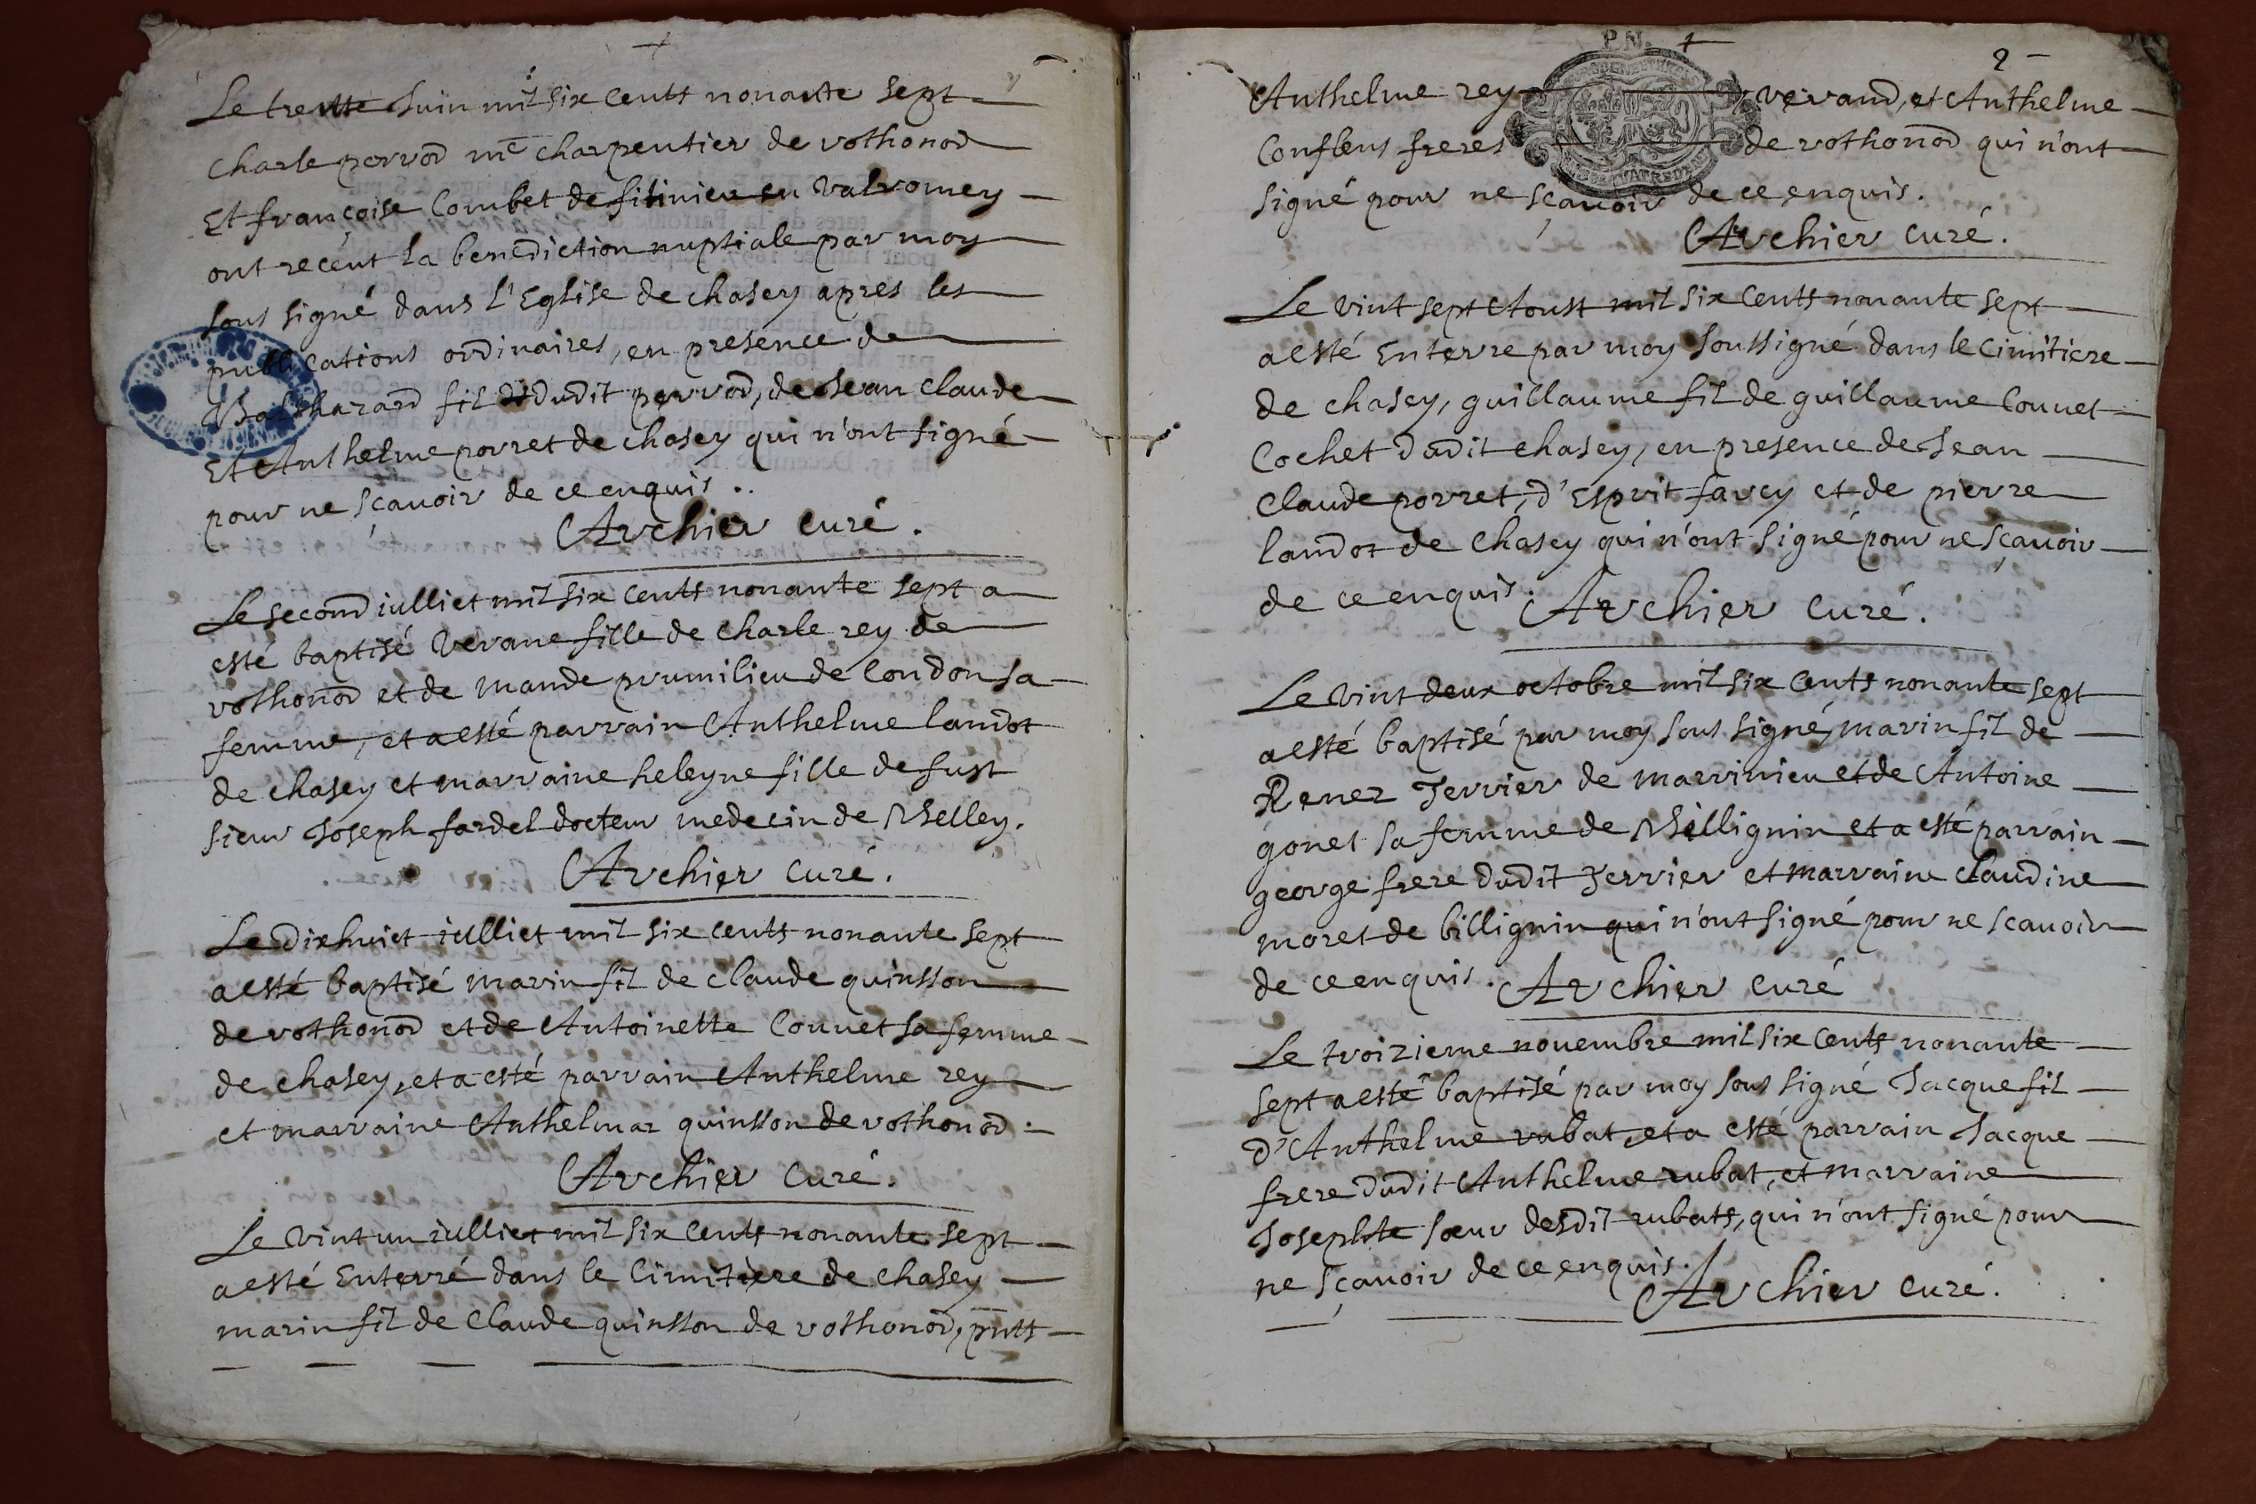 Le trente Juin mil six cents nonante sept
charle perrod me charpentier de vothonod
Et françoise Combet de fitinieu en Valromey
ont recéut la benediction nuptiale par moy
sous signé dans l'Eglise de chasey apres les
publications ordinaires, en presence de
Balthazard fil dudit perrod, de Jean Claude
Et Anthelme porret de chasey qui n'ont signé
pour ne sçavoir de ce enquis.
Archier curé.
Le second iulliet mil six cents nonante sept a
esté baptisé Verane fille de Charle rey de
vothonod et de Mande prumilieu de Condon sa
femme, et a esté parrain Anthelme landot
de chasey et marraine heleyne fille de fust
sieur Joseph fardel docteur medecin de Belley.
Archier curé.
Le dixhuict iulliet mil six cents nonante sept
a esté baptisé marin fil de claude quinsson
de vothonod et de Antoinette Convet sa femme
de chasey, et a esté parrain Anthelme rey
et marraine Anthelmaz quinsson de vothonod.
Archier curé.
Le vint un iulliet mil six cents nonante sept
a esté Enterré dans le Cimitiere de chasey
marin fil de Claude quinsson de vothonod, pnts
2
P.N.
Anthelme rey verand, et Anthelme
Conflens freres de vothonod qui n'ont
signé pour ne sçavoir de ce enquis.
Archier curé.
Le vint sept Aoust mil six cents nonante sept
a esté Enterre par moy soussigné dans le Cimitiere
de chasey, guillaume fil de guillaume Convet
Cochet dudit chasey, en presence de Jean
Claude porret, d'Esprit farcy et de pierre
landot de Chasey qui n'ont signé pour ne sçavoir
de ce enquis. Archier curé.
Le vint deux octobre mil six cents nonante sept
a esté baptisé par moy sous signé, marin fil de
Renez Terrier de marrinieu et de Antoine
gonet sa femme de Billignin et a esté parrain
george frere dudit Terrier et marraine claudine
moret de billignin qui n'ont signé pour ne scavoir
de ce enquis. Archier curé
Le troizieme novembre mil six cents nonante
sept a esté baptisé par moy sous signé Jacque fil
d'Anthelme rubat, et a esté parrain Jacque
frere dudit Anthelme rubat, et marraine
Josephte sœur desdit rubats, qui n'ont signé pour
ne sçavoir de ce enquis.
Archier curé.